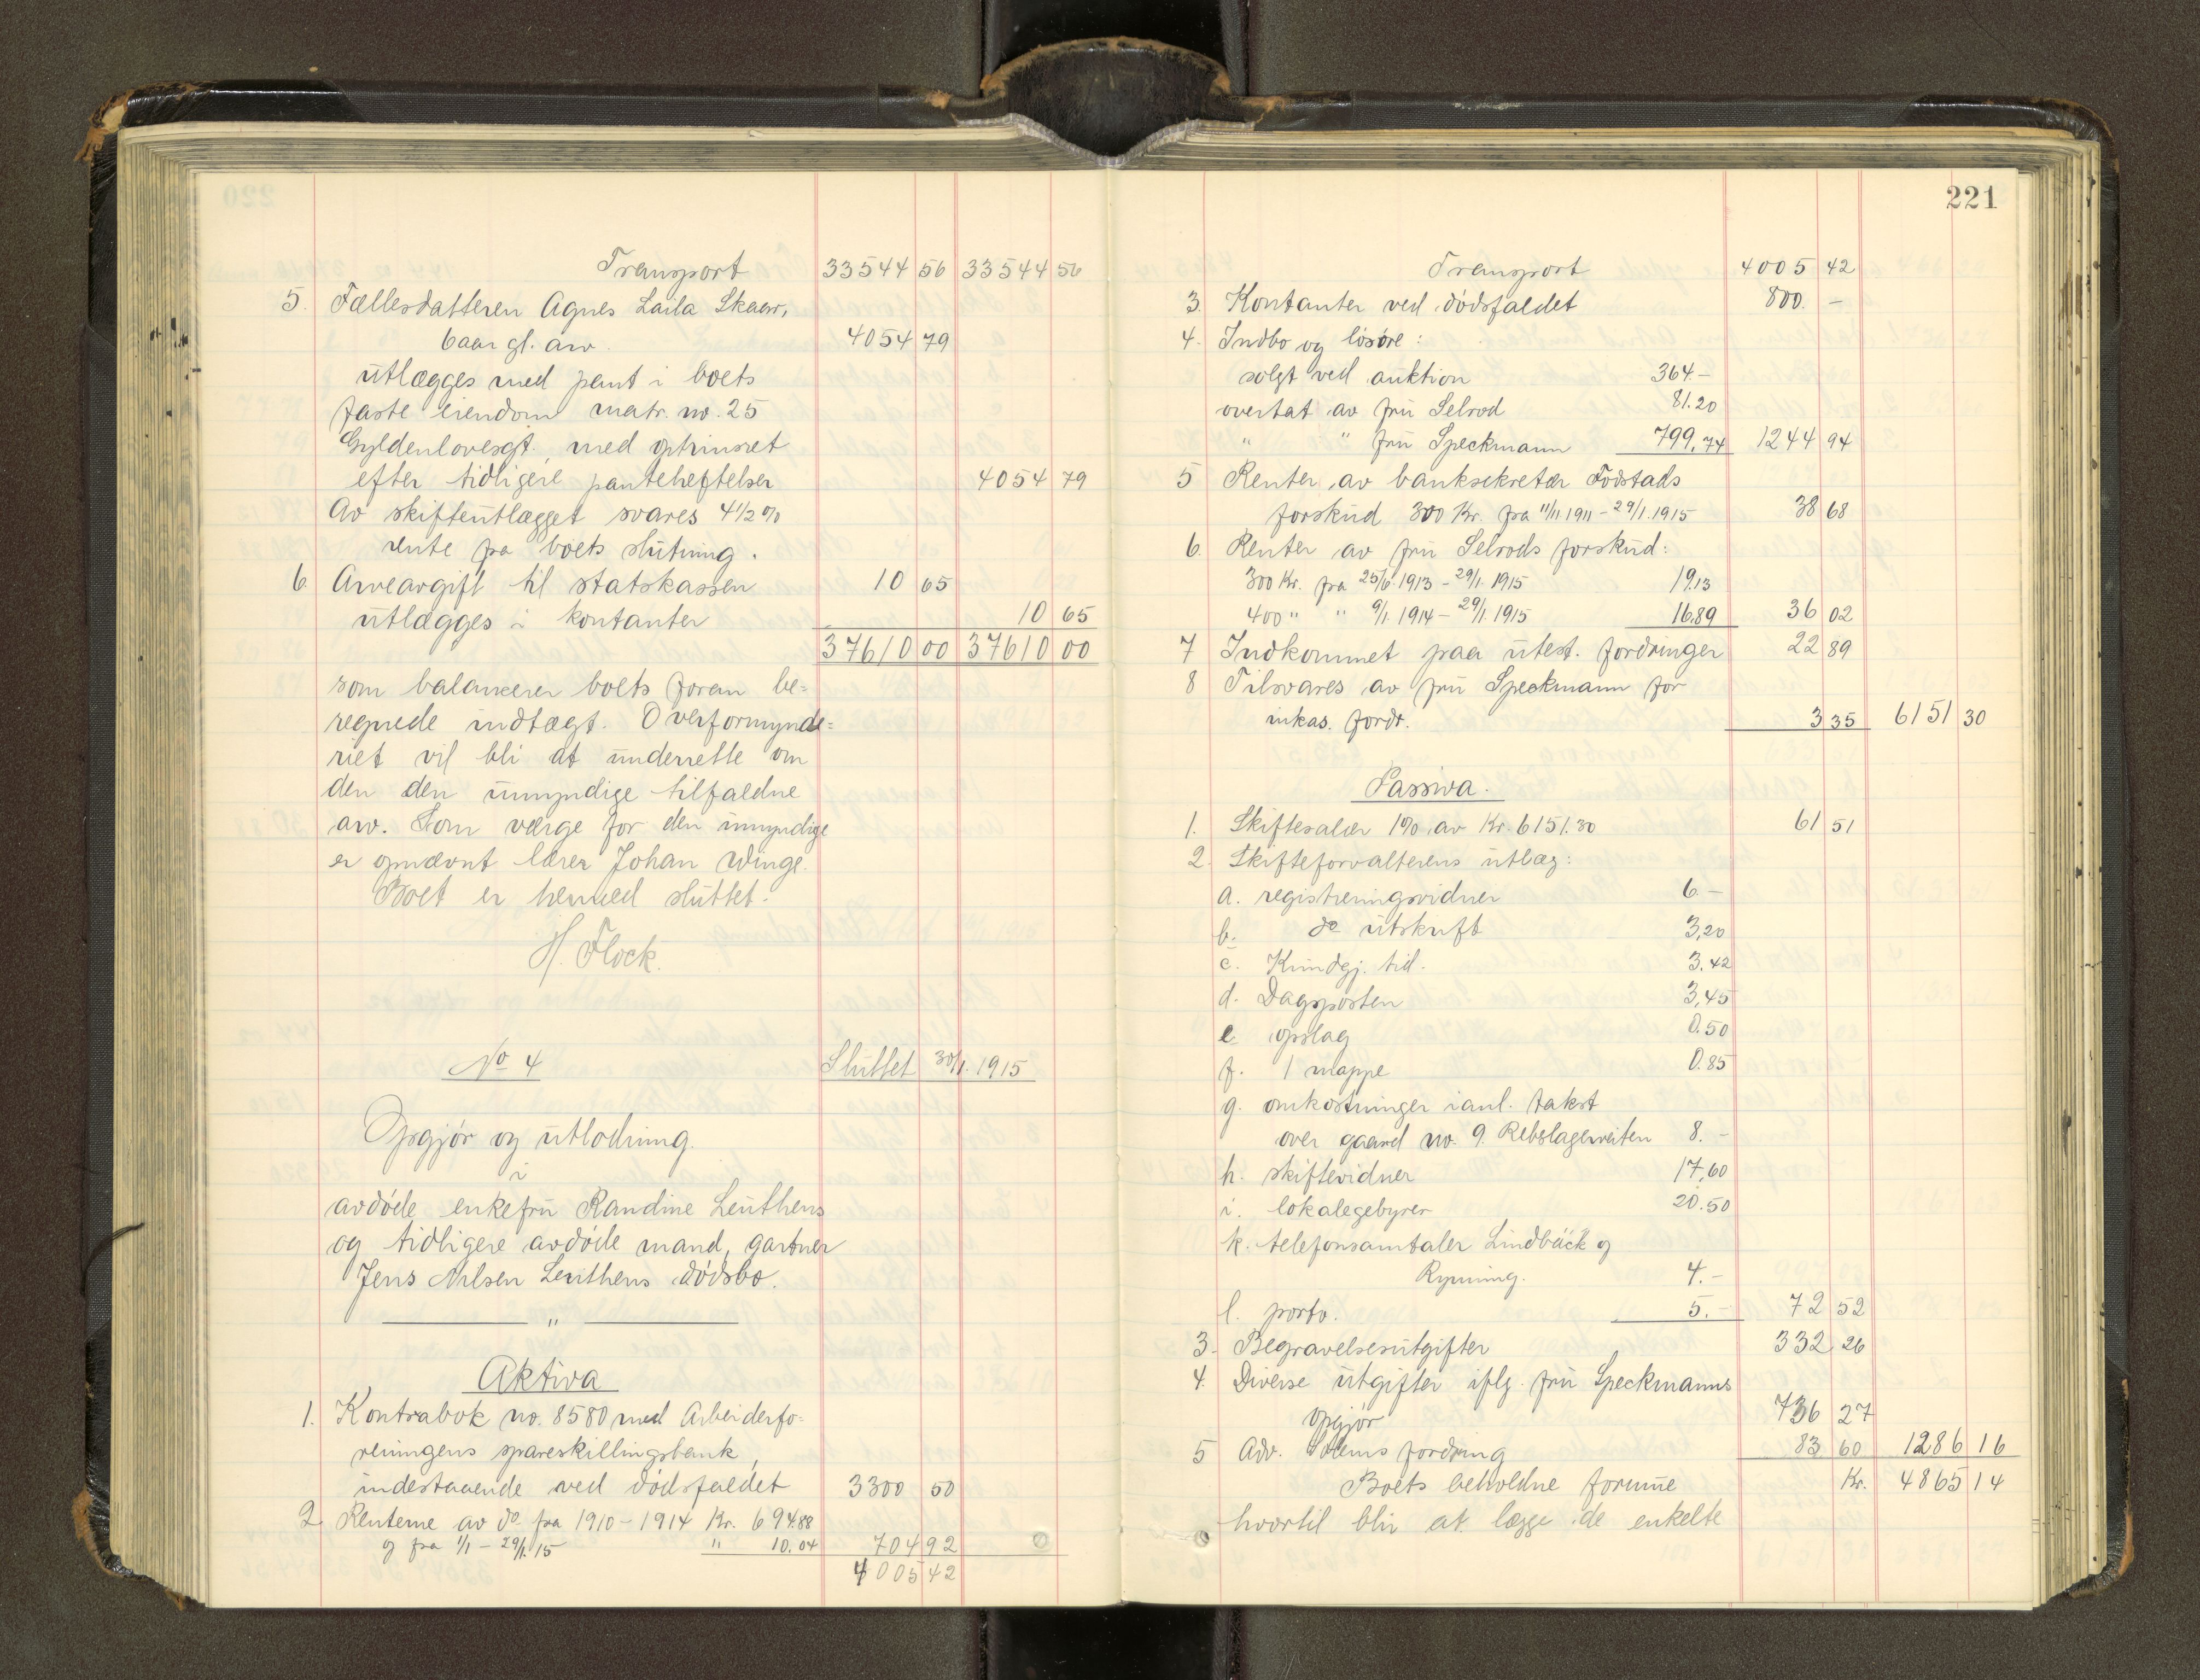 Transport 33544 56 33544 56
5. Fællesdatteren Agnes Laila Skaar,
6 aar gl. arv. 4054 79
utlægges med pant i boets
faste eiendom matr. no. 25
Gyldenlovesgt., med optrinsret
efter tidligere panteheftelser 4054 79
Av skifteutlægget svares 4 1/2 %
rente fra boets slutning.
6 Arveavgift til statskassen 10 65
utlægges i kontanter 10 65
37610 00 37610 00
som balancerer boets foran be-
regnede indtægt. Overformynde-
riet vil bli at underrette om
den den umyndige tilfaldne
arv. Som værge for den umyndige
er opnævnt lærer Johan Winge.
Boet er hermed sluttet.
H. Flock.
No 4 Sluttet 30/1. 1915
Opgjør og utlodning.
i
avdøde enkefru Randine Leuthens
og tidligere avdøde mand, gartner
Jens Nilsen Leuthens dødsbo.
"
Aktiva
1. Kontrabok no. 8580 med Arbeiderfo-
reningens spareskillingsbank,
indestaaende ved dødsfaldet 3300 50
2 Renterne av do fra 1910 - 1914 Kr. 694.88
og fra 1/1 - 29/1. 15 " 10.04 704 92
4005 42
221
Transport 4005 42
3. Kontanter ved dødsfaldet 800. -
4. Indbo og løsøre:
solgt ved auktion 364.-
overtat av fru Selrod 81.20
" " fru Speckmann 799.74 1244 94
5 Renter av banksekretær Fodstads
forskud 300 Kr. fra 11/11 1911 - 29/1. 1915 38 68
6. Renter av fru Selrods forskud:
300 Kr. fra 25/6. 1913 - 29/1. 1915 19.13
400 " " 9/1. 1914 - 29/1. 1915 16.89 36 02
7 Indkommet paa utest. fordringer 22 89
8 Tilsvares av fru Speckmann for
inkas. fordr. 3 35 6151 30
Passiva.
1. Skiftesalær 1% av Kr. 6151.30 61 51
2. Skifteforvalterens utlæg:
a. registreringsvidner 6.-
b. do utskrift 3,20
c. Kundgj. tid. 3.42
d. Dagsposten 3,45
e opslag 0.50
f. 1 mappe 0.85
g. omkostninger i anl. takst
over gaard no. 9. Rebslagerveiten 8. -
h. skiftevidner 17,60
i. lokalegebyrer 20.50
k. telefonsamtaler Lindbäck og
Rynning. 4.-
l. porto. 5.- 72 52
3. Begravelsesutgifter 332 26
4. Diverse utgifter iflg. fru Speckmanns
opgjør 736 27
5 Adv. fordring 83 60 1286 16
Boets beholdne formue Kr. 4865 14
hvortil blir at lægge de enkelte